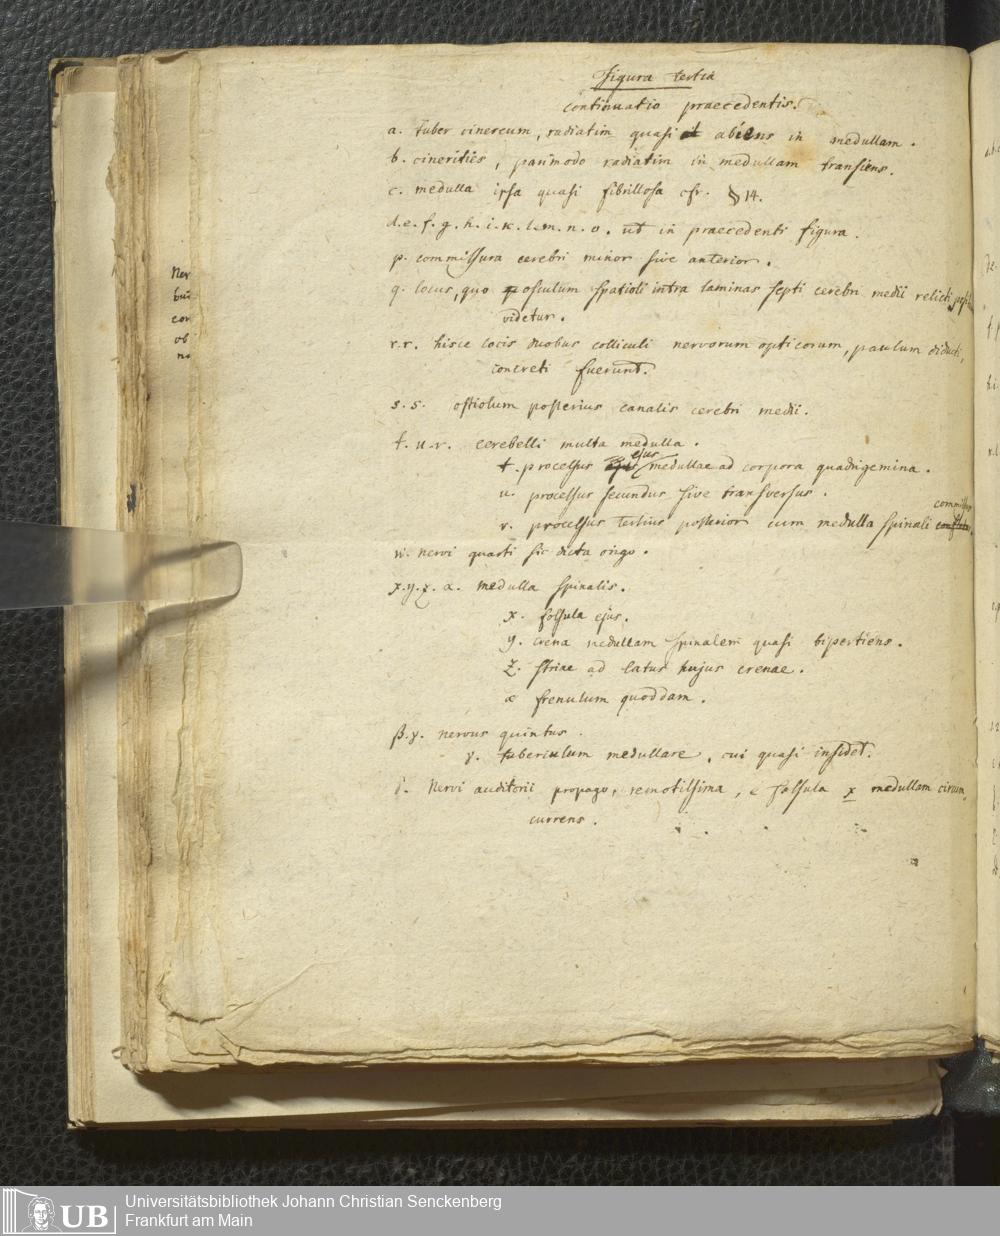 Figura tertia
continuatio praecedentis.
a. tuber cinereum, radiatim quasi abiens in medullam.
b. cinerities, parimodo radiatim in medullam transiens.
c. medulla ipsa quasi fibrillosa cfr. § 14.
d. e. f. g. h. i. k. l. m. n. o. ut in praecedenti figura.
p. commissura cerebri minor sive anterior.
q. locus, quo osculum spatioli intra laminas septi cerebri medii relicti
videtur.
r. r. hisce locis duobus colliculi nervorum opticorum, paulum diducti,
concreti fuerunt.
s. s. ostiolum posterius canalis cerebri medii.
t. u. v. cerebelli multa medulla.
ejus
t. processus ejus medullae ad corpora quadrigemina.
u. processus secundus sive transversus.
commissus
v. processus tertius posterior cum medulla spinali
w. nervi quarti sic dicta origo.
x. y. z. α. medulla spinalis.
x. fossula ejus.
y. crena medullam spinalem quasi bipertiens.
z. striae ad latus hujus crenae.
α frenulum quoddam.
β. γ. nervus quintus.
γ. tuberculum medullare, cui quasi insidet.
δ. Nervi auditorii propago, remotissima, e fossula x medullam circum,
currens.
Ner
bui
cor
ob
Universitätsbibliothek Johann Christian Senckenberg
UB
Frankfurt am Main